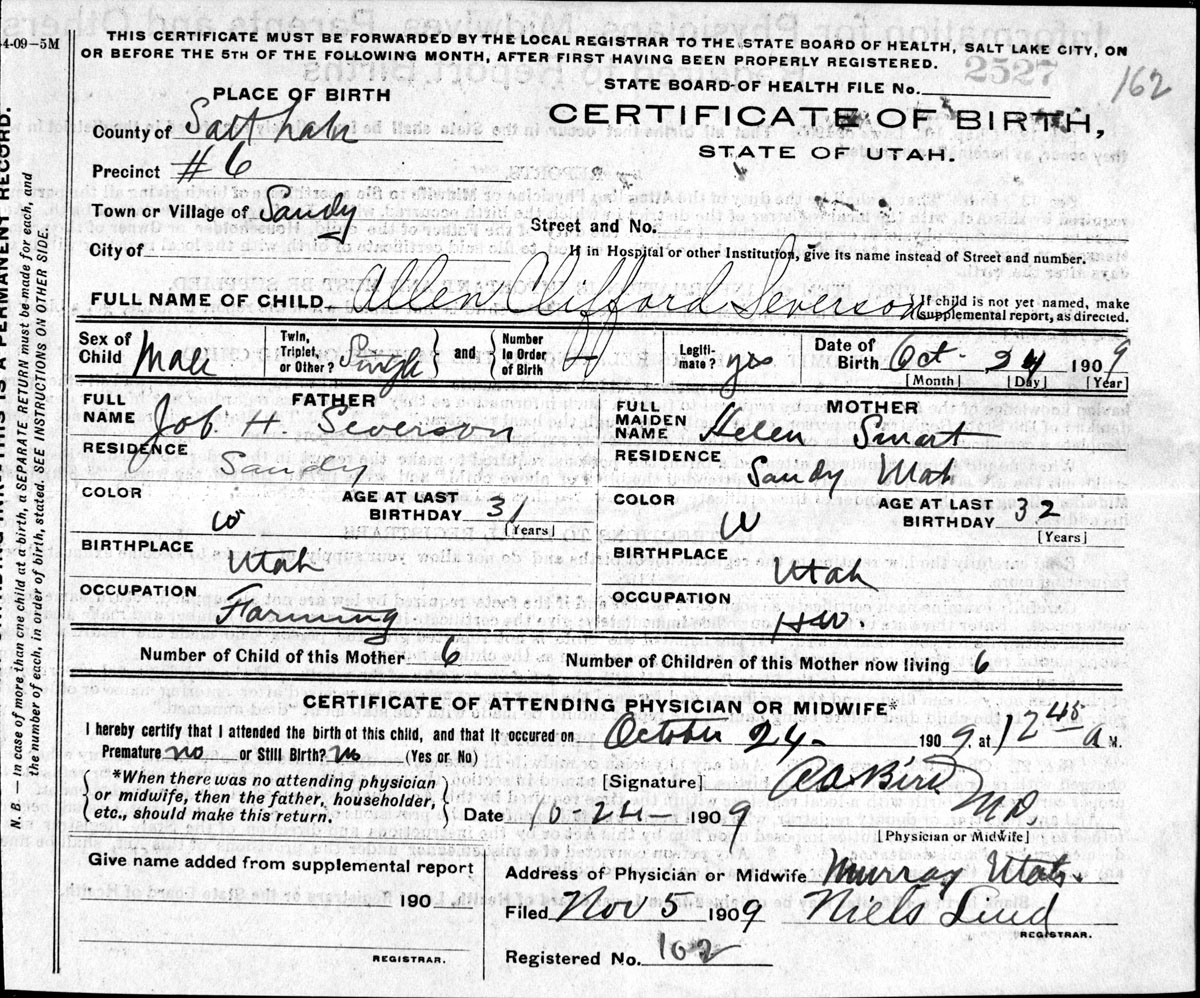 4-09-5M
THIS CERTIFICATE MUST BE FORWARDED BY THE LOCAL REGISTRAR TO THE STATE BOARD OF HEALTH, SALT LAKE CITY, ON
OR BEFORE THE 5TH OF THE FOLLOWING MONTH, AFTER FIRST HAVING BEEN PROPERLY REGISTERED.
2527
162
STATE BOARD OF HEALTH FILE No.
PLACE OF BIRTH
CERTIFICATE OF BIRTH,
STATE OF UTAH.
County of Salt Lake
Precinct #6
Town or Village of Sandy
Street and No.
City of
If in Hospital or other Institution, give its name instead of Street and number.
FULL NAME OF CHILD Allen Clifford Severson
{If child is not yet named, make supplemental report, as directed.
Sex of Child Male
Twin, Triplet, or Other? Single } and { Number in Order of Birth
Legitimate? yes
Date of Birth Oct - 24 1909
[Month] [Day] [Year]
FATHER
FULL NAME Job. H Severson
RESIDENCE Sandy
COLOR W
AGE AT LAST BIRTHDAY 31
[Years]
BIRTHPLACE Utah
OCCUPATION Farming
MOTHER
FULL MAIDEN NAME Helen Smart
RESIDENCE Sandy Utah
COLOR W
AGE AT LAST BIRTHDAY 32
[Years]
BIRTHPLACE Utah
OCCUPATION HW.
Number of Child of this Mother 6
Number of Children of this Mother now living 6
CERTIFICATE OF ATTENDING PHYSICIAN OR MIDWIFE*
I hereby certify that I attended the birth of this child, and that it occured on October 24- 1909, at 12 45 a M.
Premature no or Still Birth? no (Yes or No)
*When there was no attending physician
or midwife, then the father, householder,
etc., should make this return.
[Signature] Bird MD
[Physician or Midwife]
Date 10 24- 1909
Give name added from supplemental report
190
REGISTRAR.
Address of Physician or Midwife Murray Utah.
Filed Nov 5 1909 Niels Lind
REGISTRAR.
Registered No. 162
THIS IS A PERMANENT RECORD.
N. B. — In case of more than one child at a birth, a SEPARATE RETURN must be made for each, and
the number of each, in order of birth, stated. SEE INSTRUCTIONS ON OTHER SIDE.